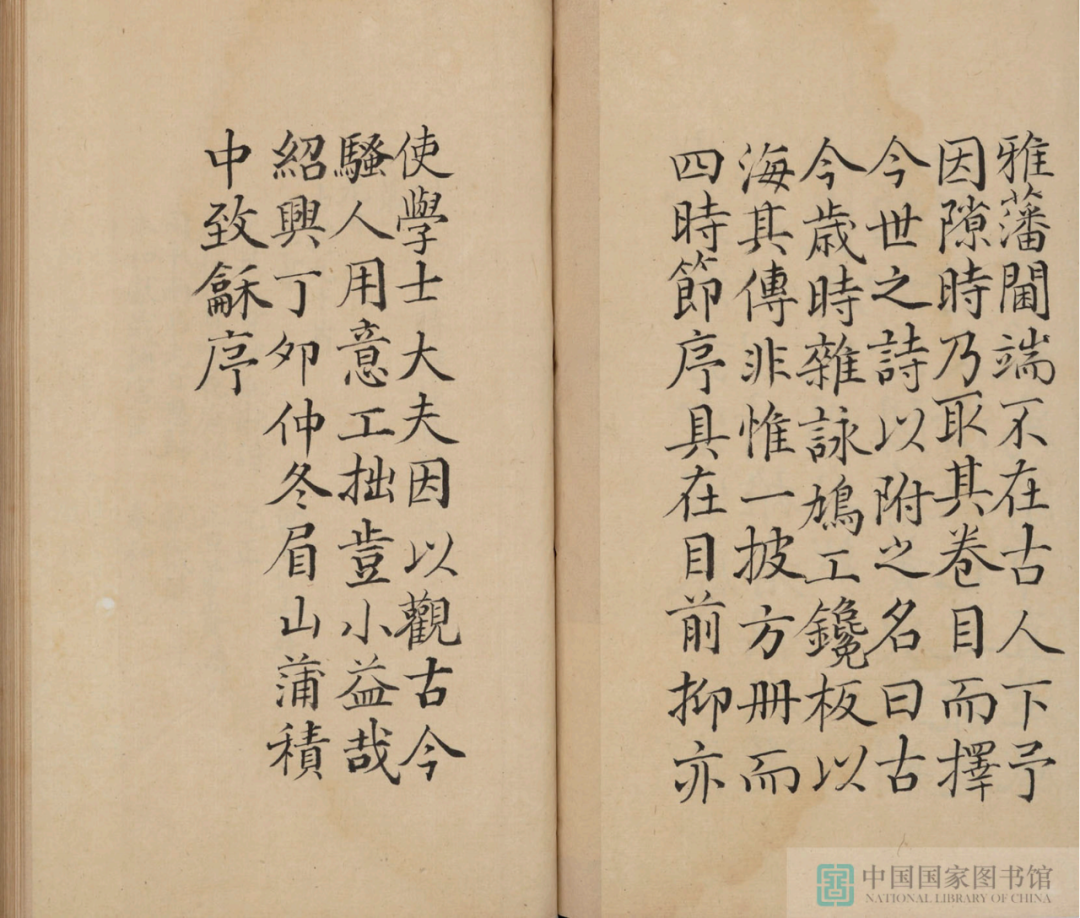 雅藩閫端不在古人下予
因隙時乃取其卷目而擇
今世之詩以附之名曰古
今歲時雜詠鳩工鑱板以
海其傳非惟一披方冊而
四時節序具在目前抑亦
使學士大夫因以觀古今
騷人用意工拙豈小益哉
紹興丁卯仲冬眉山蒲積
中致龢序
中国国家图书馆
NATIONAL LIBRARY OF CHINA